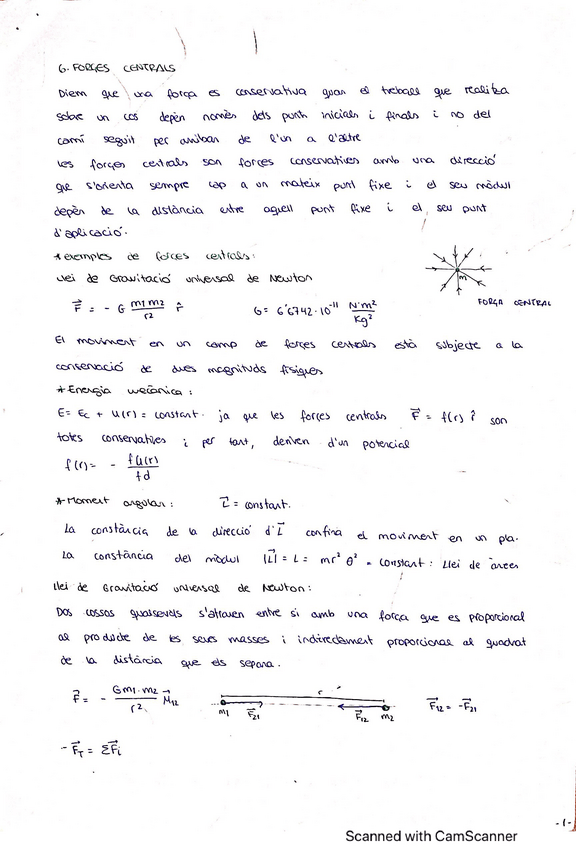 6. FORCES CENTRALS
Diem que una força es conservativa quan el treball que realitza
sobre un cos depèn només dels punts inicials i finals i no del
camí seguit per arribar de l'un a l'altre
les forçes centrals son forçes conservatives amb una direcció
que s'orienta sempre cap a un mateix punt fixe i el seu mòdul
depèn de la distància entre aquell punt fixe i el seu punt
d'aplicació.
* exemples de forces centrals:
Llei de Gravitació universal de Newton
m
FORÇA CENTRAL
F⃗ = - G m1 m2 / r2 r̂ G = 6'6742·10⁻¹¹ N·m² / Kg²
El moviment en un camp de forçes centrals està subjecte a la
conservació de dues magnituds físiques
* Energia mecànica:
E = Ec + U(r) = constant. ja que les forçes centrals F⃗ = f(r) r̂ son
totes conservatives i per tant, deriven d'un potencial
f(r) = - fu(r) / fd
* Moment angular: L⃗ = constant.
La constància de la direcció d'L⃗ confina el moviment en un pla.
La constància del mòdul |L⃗| = L = mr² θ² = constant: Llei de àrees
Llei de Gravitació universal de Newton:
Dos cossos qualsevols s'atrauen entre si amb una força que es proporcional
al producte de les seues masses i indirectament proporcional al quadrat
de la distància que els separa.
F⃗ = - G m1·m2 / r2 μ⃗12 r m1 F⃗21 F⃗12 m2 F⃗12 = -F⃗21
- F⃗T = ΣF⃗i
-1-
Scanned with CamScanner